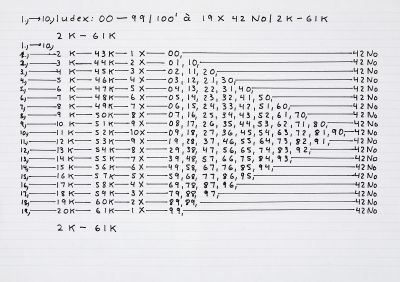 1,→10, Index: 00—99/100' à 19 X 42 No/2K–61K
2K–61K
1,→10,
1,—2 K—43K—1 X—00,—42 No
2,—3 K—44K—2 X—01, 10,—42 No
3,—4 K—45K—3 X—02, 11, 20,—42 No
4,—5 K—46K—4 X—03, 12, 21, 30,—42 No
5,—6 K—47K—5 X—04, 13, 22, 31, 40,—42 No
6,—7 K—48K—6 X—05, 14, 23, 32, 41, 50,—42 No
7,—8 K—49K—7 X—06, 15, 24, 33, 42, 51, 60,—42 No
8,—9 K—50K—8 X—07, 16, 25, 34, 43, 52, 61, 70,—42 No
9,—10 K—51K—9 X—08, 17, 26, 35, 44, 53, 62, 71, 80,—42 No
10,—11 K—52K—10X—09, 18, 27, 36, 45, 54, 63, 72, 81, 90,—42 No
11,—12 K—53K—9 X—19, 28, 37, 46, 55, 64, 73, 82, 91,—42 No
12,—13 K—54K—8 X—29, 38, 47, 56, 65, 74, 83, 92,—42 No
13,—14 K—55K—7 X—39, 48, 57, 66, 75, 84, 93,—42 No
14,—15 K—56K—6 X—49, 58, 67, 76, 85, 94,—42 No
15,—16 K—57K—5 X—59, 68, 77, 86, 95,—42 No
16,—17 K—58K—4 X—69, 78, 87, 96,—42 No
17,—18 K—59K—3 X—79, 88, 97,—42 No
18,—19 K—60K—2 X—89, 98,—42 No
19,—20 K—61K—1 X—99,—42 No
2K–61K